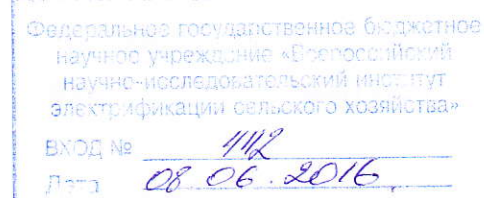 Федеральное государственное бюджетное
научное учреждение «Всероссийский
научно-исследовательский институт
электрификации сельского хозяйства»
ВХОД № 442
Дата 08.06.2016